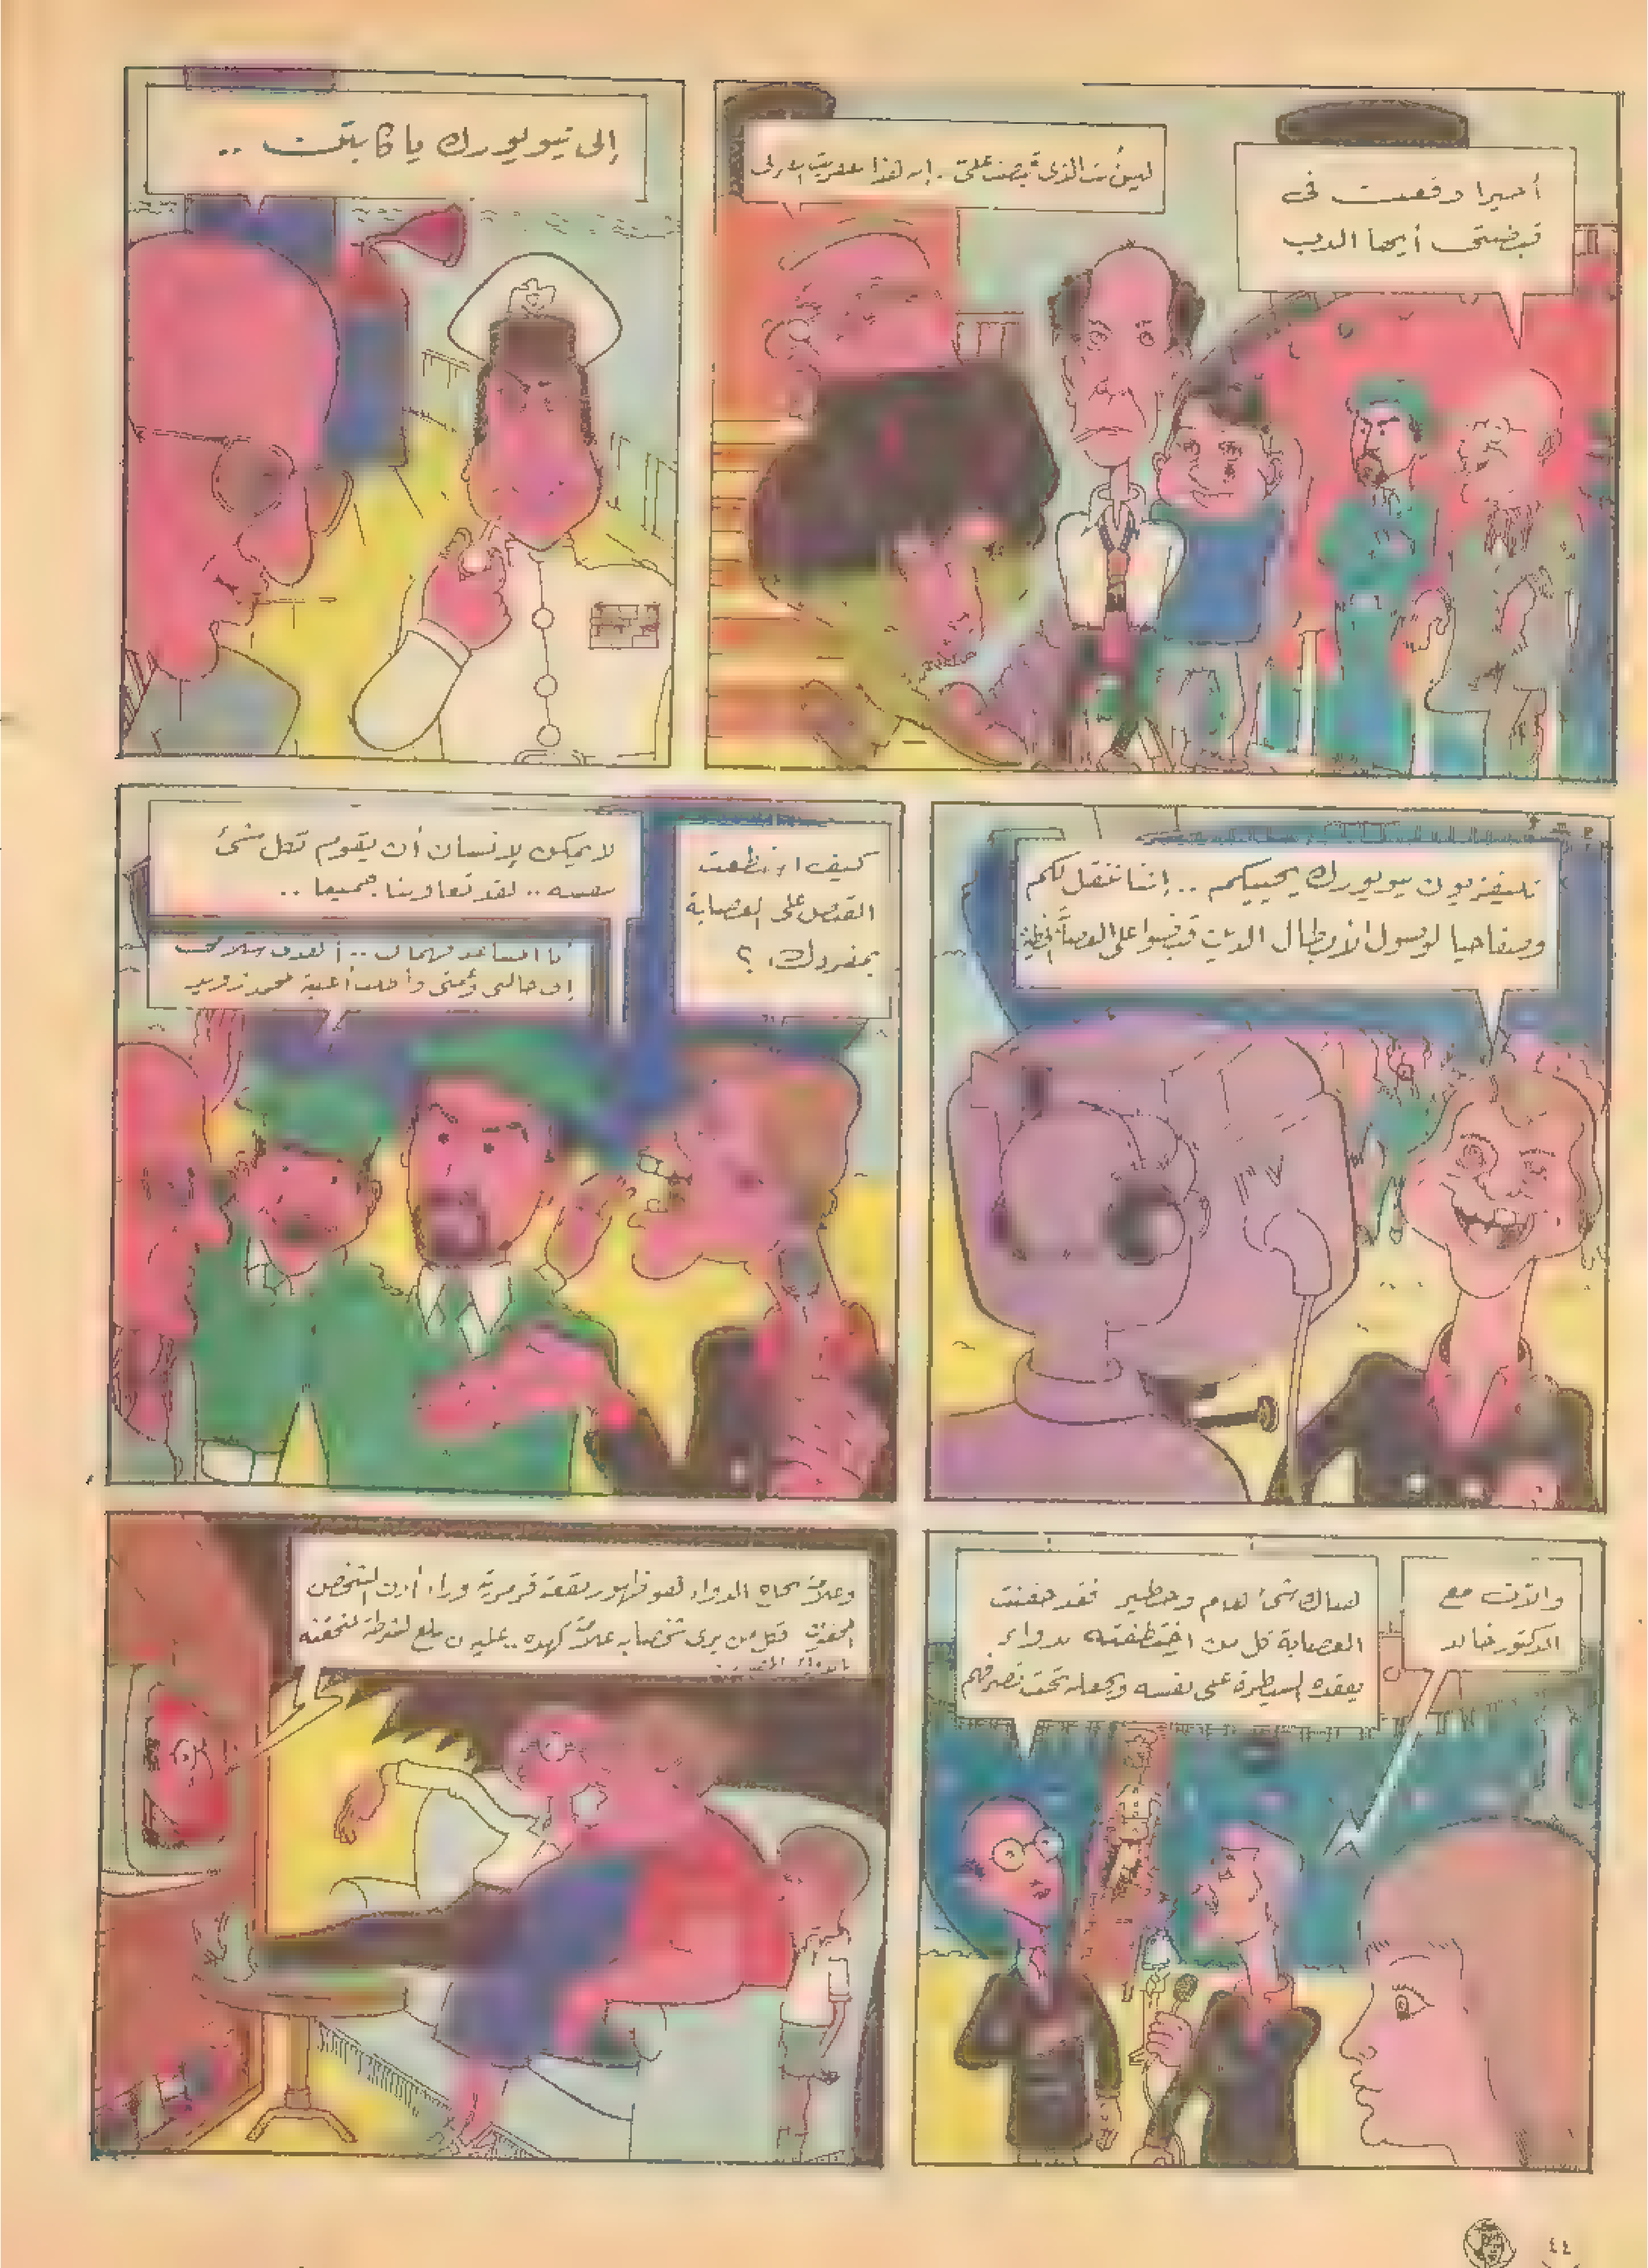 أخيرا وقعت في
قبضتي أيها الدب
ليس أنت الذي قبضت على .. إنه هذا
إلى نيويورك يا كابتن ..
تليفزيون نيويورك يحييكم .. إننا ننقل لكم
وصفا حيا لوصول الأبطال الذين قبضوا على العصابة
كيف استطعت
القبض على العصابة
بمفردك ؟
لا يمكن لإنسان أن يقوم بكل شئ
بنفسه .. لقد تعاونا جميعا ..
أنا المساعد .. أهدي سلامي
إلى خالتي وأطلب أغنية لمحمد
والآن مع
الدكتور خالد
هناك شئ هام وخطير فقد حقنت
العصابة كل من اختطفته بدواء
يفقده السيطرة على نفسه ويجعله تحت تصرفهم
وعلامة هذا الدواء هو ظهور بقعة قرمزية وراء أذن الشخص
المحقون فكل من يرى شخصا به علامة كهذه .. عليه أن يبلغ الشرطة لتحقنه
٤٤